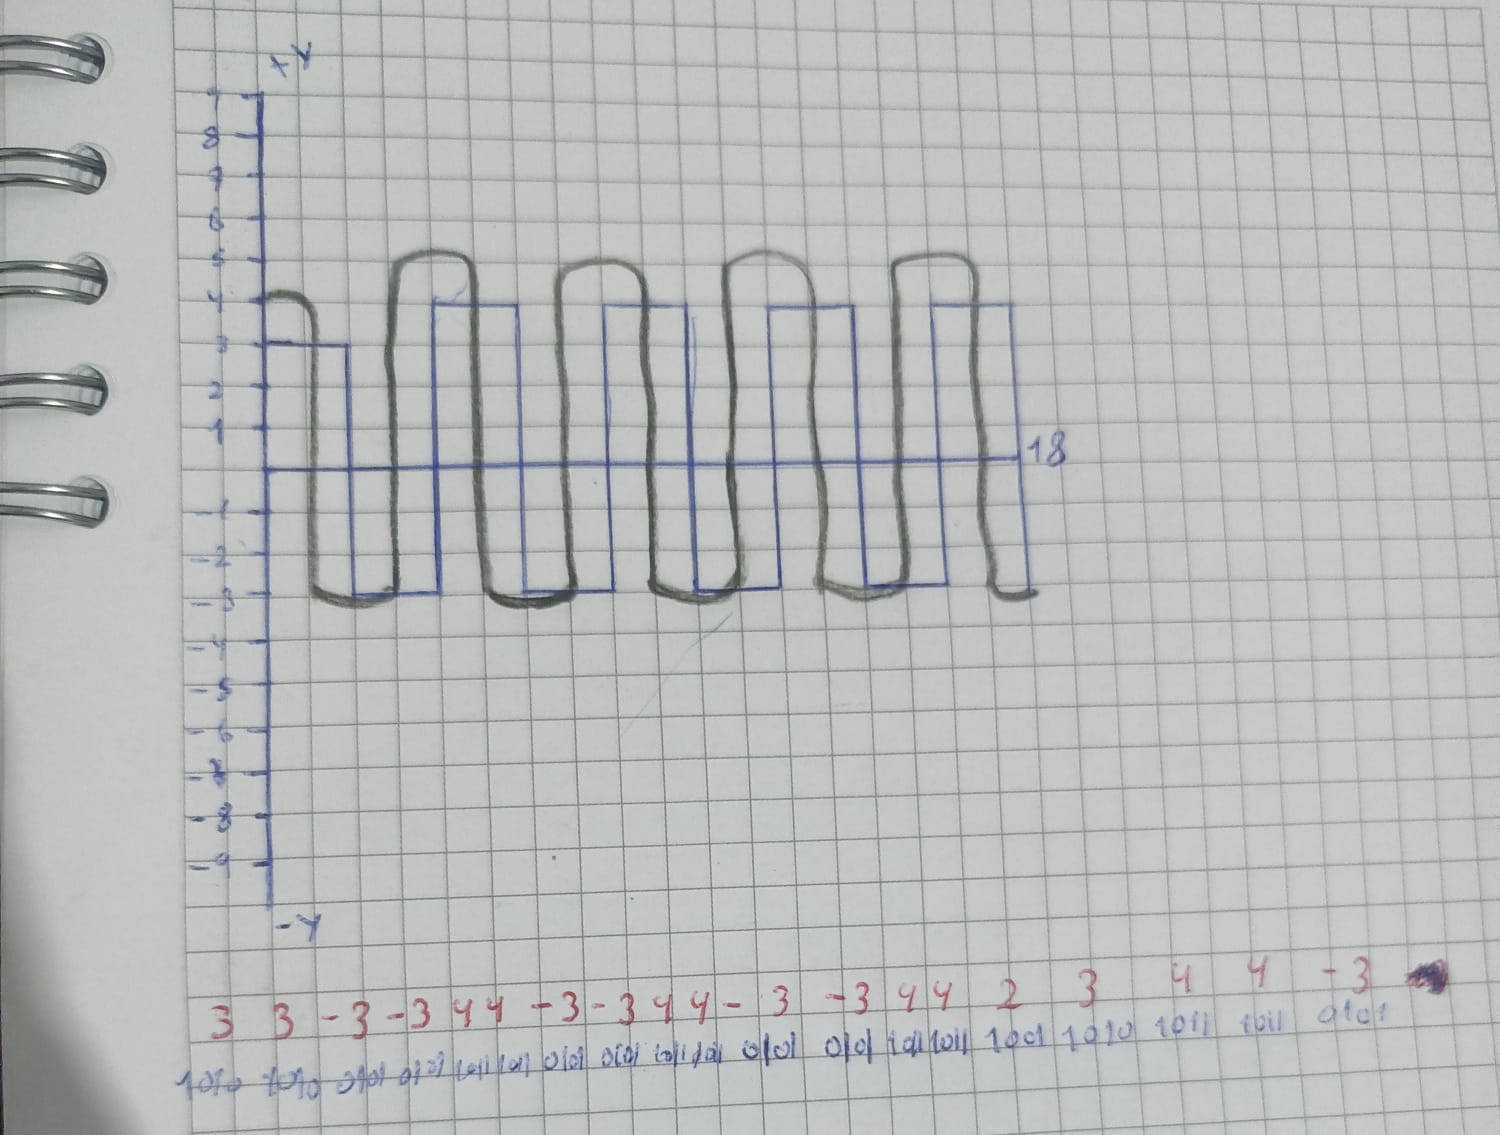 +Y
9
8
7
6
5
4
3
2
1
18
-1
-2
-3
-4
-5
-6
-7
-8
-9
-Y
3 3 -3 -3 4 4 -3 -3 4 4 -3 -3 4 4 2 3 4 4 -3
1010 1010 0101 0101 1011 1011 0101 0101 1011 1011 0101 0101 1011 1011 1001 1010 1011 1011 0101